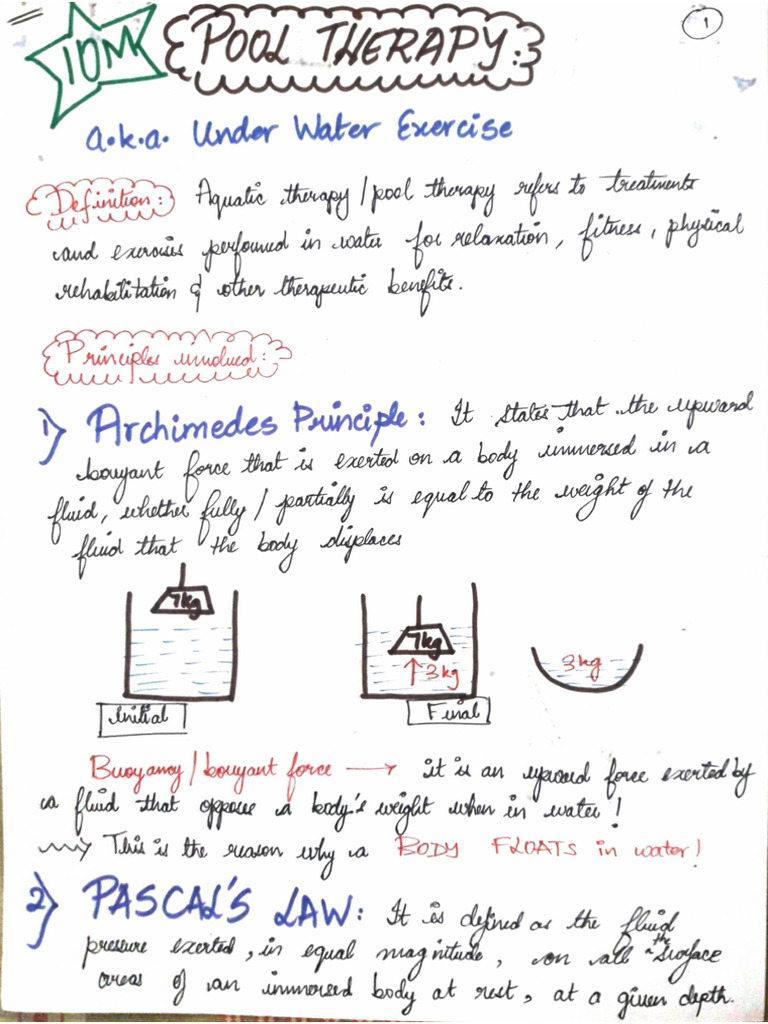 1
10M
POOL THERAPY:
a.k.a. Under Water Exercise
Definition: Aquatic therapy / pool therapy refers to treatments
and exercises performed in water for relaxation, fitness, physical
rehabilitation & other therapeutic benefits.
Principles involved:
1) Archimedes Principle: It states that the upward
bouyant force that is exerted on a body immersed in a
fluid, whether fully / partially is equal to the weight of the
fluid that the body displaces
7kg
7kg
3kg
3kg
Initial
Final
Buoyancy / bouyant force → it is an upward force exerted by
a fluid that oppose a body's weight when in water!
This is the reason why a BODY FLOATS in water!
2) PASCAL'S LAW: It is defined as the fluid
pressure exerted, in equal magnitude, on all the surface
areas of an immersed body at rest, at a given depth.